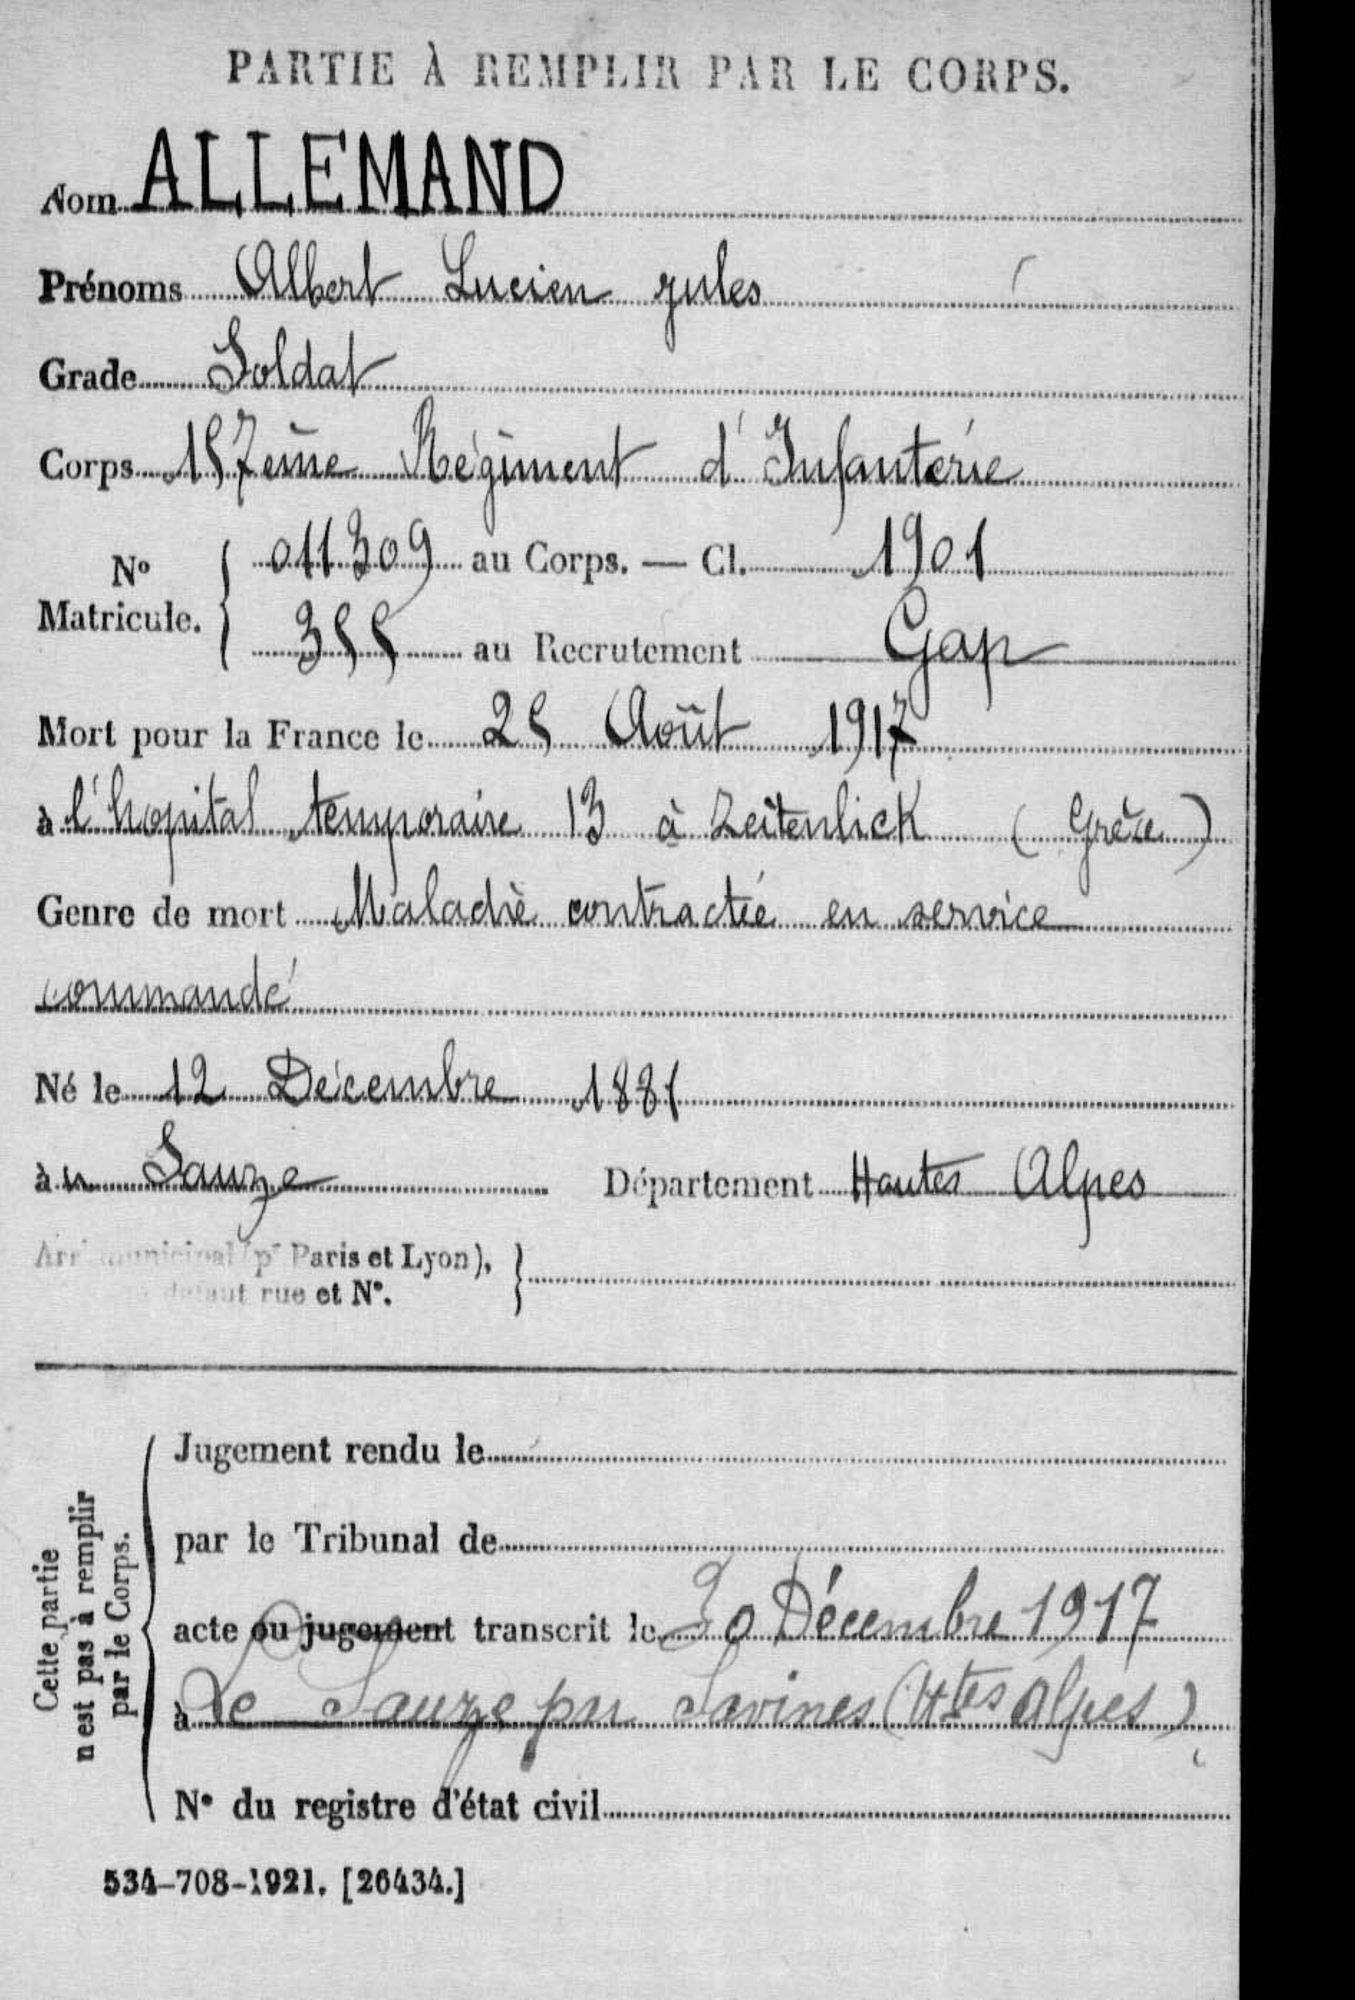 PARTIE À REMPLIR PAR LE CORPS.
Nom ALLEMAND
Prénoms Albert Lucien Jules
Grade Soldat
Corps 157ème Régiment d'Infanterie
N° Matricule. 011309 au Corps. — Cl. 1901
355 au Recrutement Gap
Mort pour la France le 25 Août 1917
à l'hopital temporaire 13 à Zeitenlick (Grèce)
Genre de mort Maladie contractée en service
commandé
Né le 12 Décembre 1881
au Sauze Département Hautes Alpes
Arrt municipal (pr Paris et Lyon),
à défaut rue et N°.
Cette partie
n'est pas à remplir
par le Corps.
Jugement rendu le
par le Tribunal de
acte ou jugement transcrit le 30 Décembre 1917
à Le Sauze par Savines (Htes Alpes)
N° du registre d'état civil
534-708-1921. [26434.]